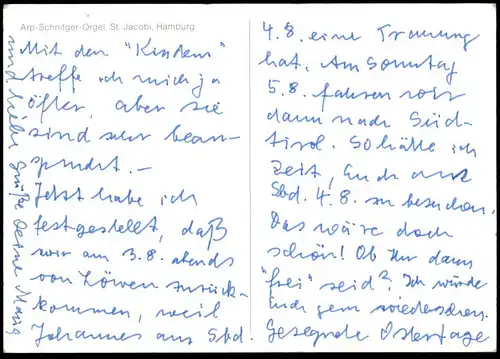 Arp-Schnitger-Orgel, St. Jacobi, Hamburg
Mit den "Kindern"
treffe ich mich ja
öfter, aber sie
sind sehr bean-
sprucht. -
Jetzt habe ich
festgestellt, daß
wir am 3.8. abends
von Löwen zurück-
kommen, weil
Johannes am Sbd.
4.8. eine Trauung
hat. Am Sonntag
5.8. fahren wir
dann nach Süd-
tirol. So hätte ich
Zeit, Euch am
Sbd. 4.8. zu besuchen.
Das wäre doch
schön! Ob Ihr dann
"frei" seid? Ich würde
Euch gern wiedersehen.
Gesegnete Ostertage
und liebe Grüße Deine